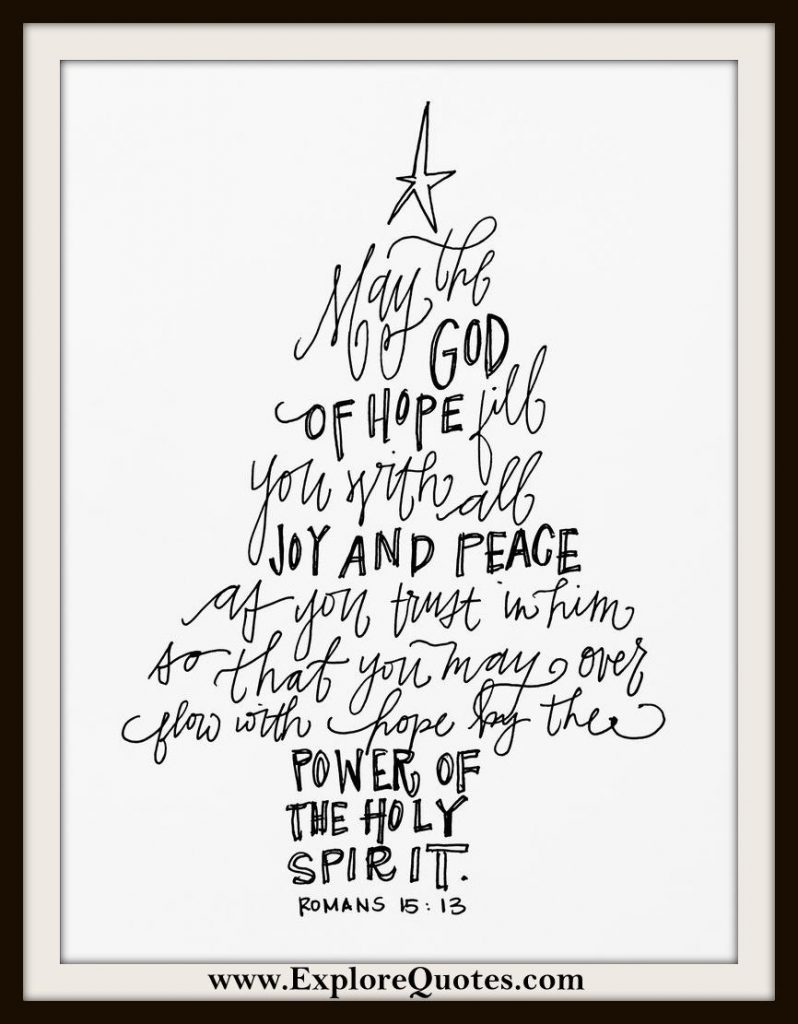 May the
GOD
OF HOPE fill
you with all
JOY AND PEACE
as you trust in him
so that you may over
flow with hope by the
POWER OF
THE HOLY
SPIRIT.
ROMANS 15:13
www.ExploreQuotes.com